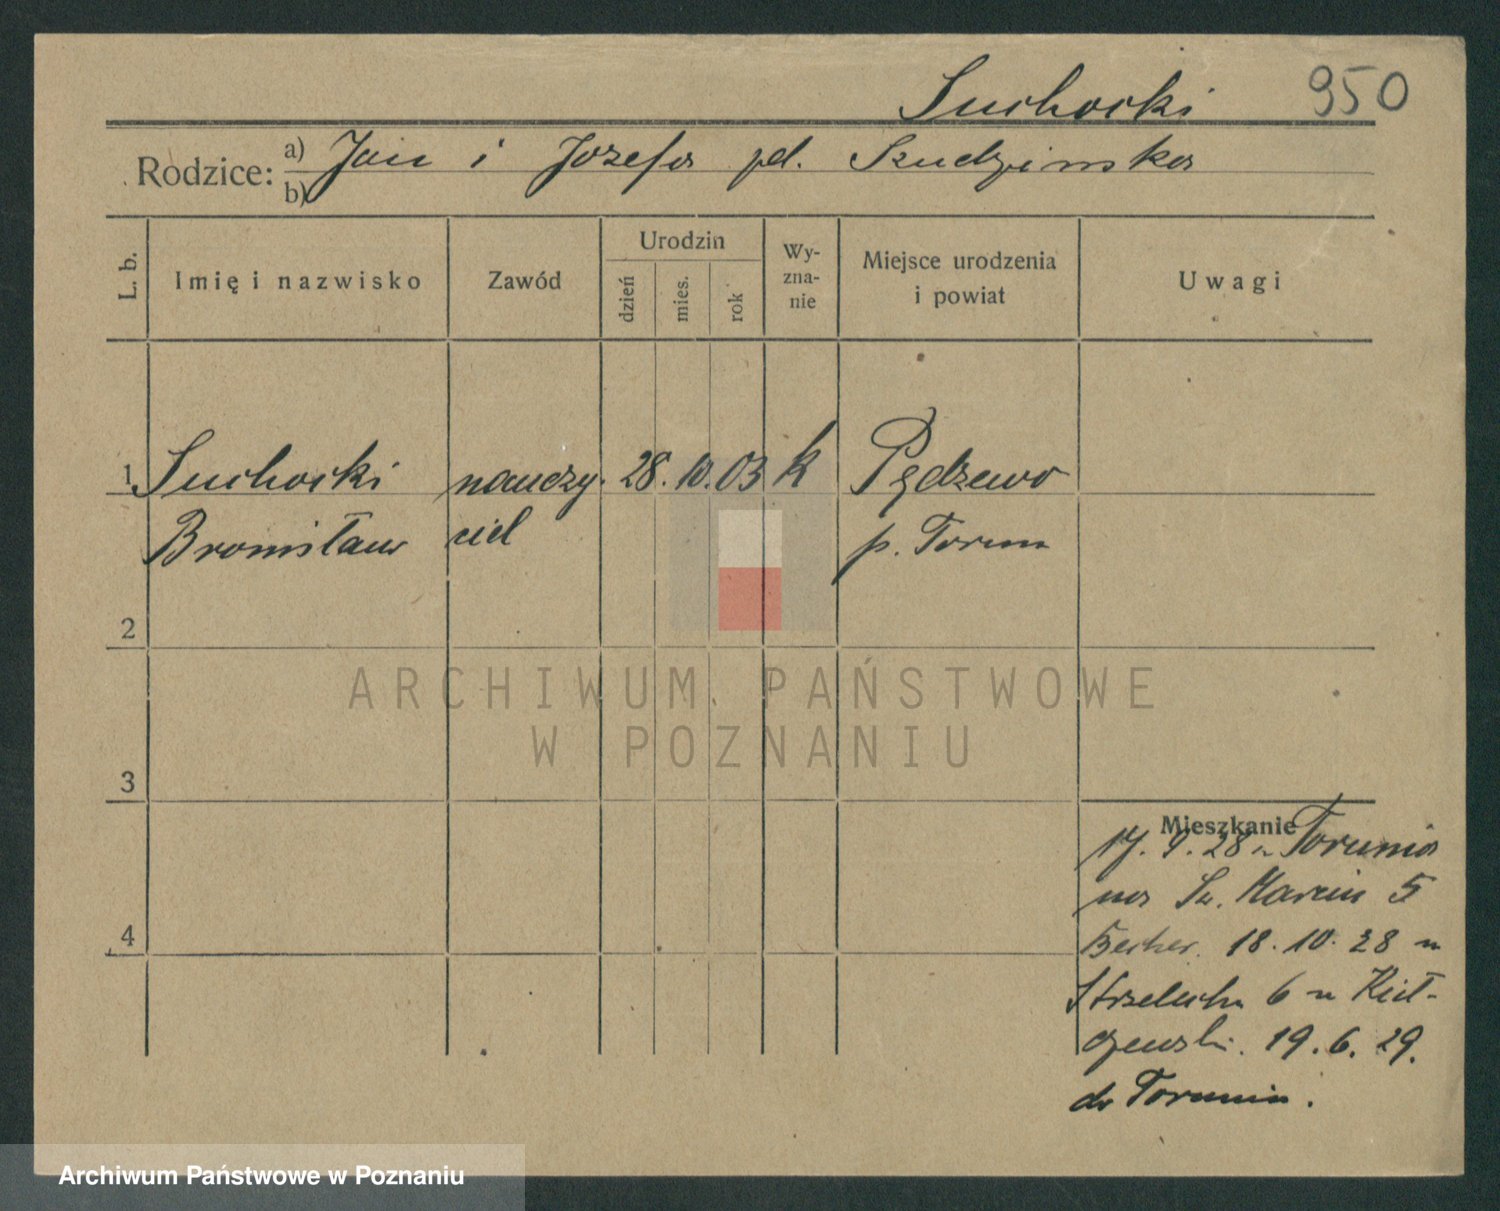 Suchocki 950
Rodzice: a) Jan i Józefa zd. Szudzińska
b)
L. b.
Imię i nazwisko
Zawód
Urodzin
dzień
mies.
rok
Wy-
zna-
nie
Miejsce urodzenia
i powiat
Uwagi
1 Suchocki nauczy- 28. 10. 03 k Pędzewo
Bronisław ciel p. Toruń
2
3
4
Mieszkanie
17. 9. 28 z Torunia
na Św. Marcin 5
Becher. 18. 10. 28 u
Strzelecka 6 u Kieł-
czewski. 19. 6. 29.
do Torunia.
ARCHIWUM PAŃSTWOWE
W POZNANIU
Archiwum Państwowe w Poznaniu